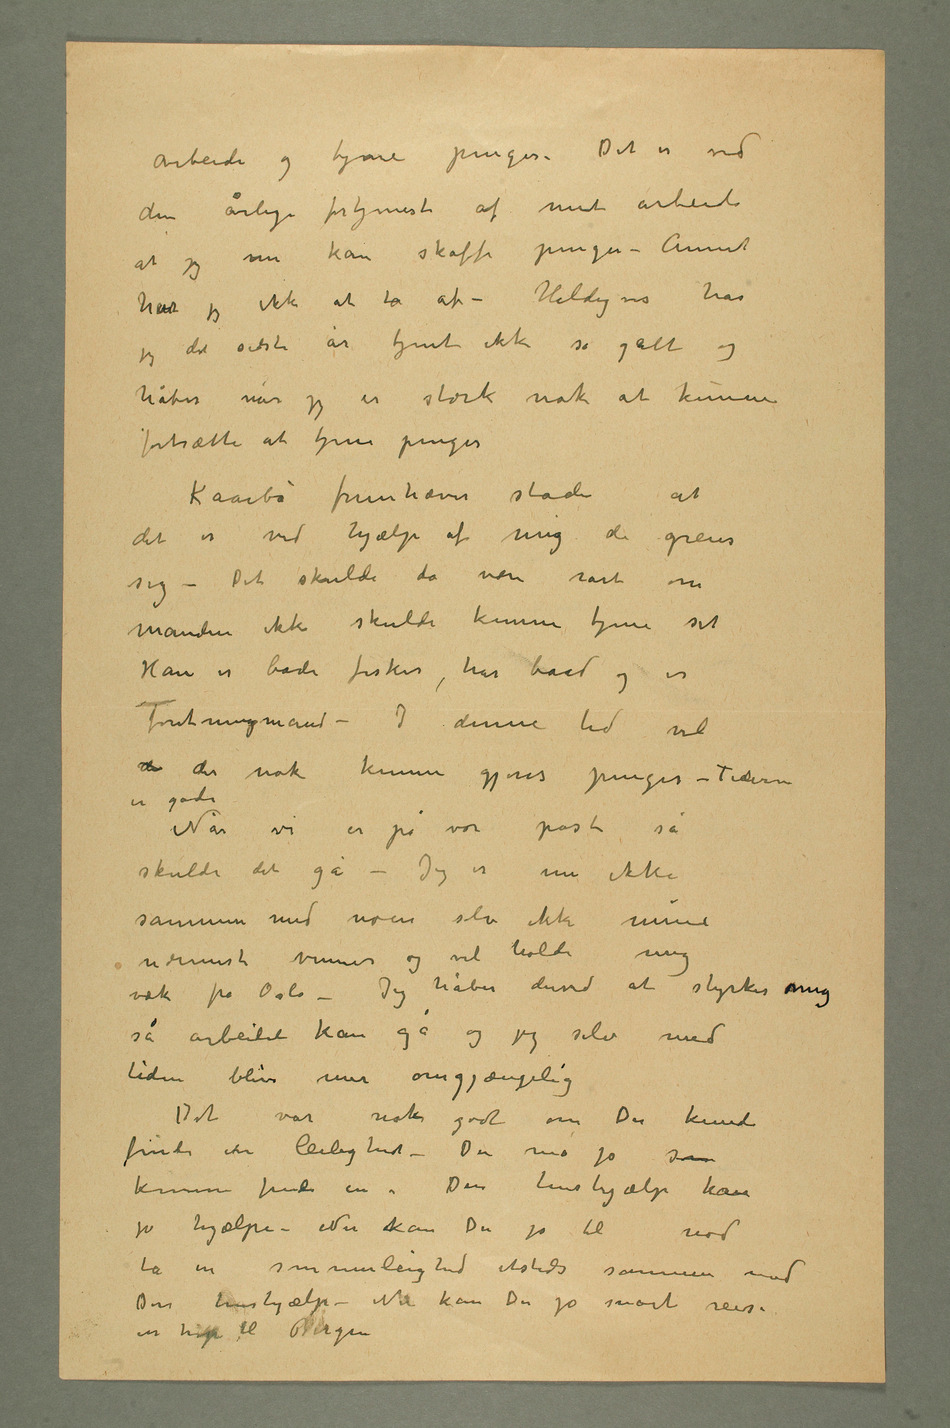 arbeide og tjene penger. Det er ved
den årlige fortjeneste af mit arbeide
at jeg nu kan skaffe penger – Annet
har jeg ikke at ta af – Heldigvis har
jeg det sidste år tjent ikke så galt og
håber når jeg er stærk nok at kunne
fortsætte at tjene penger
Kaarbö fremhæver stadi at
det er ved hjælp af mig de greier
sig – Det skulde da være rart om
manden ikke skulde kunne tjene sit
Han er både fisker, har baad og er
forretningmand – I denne tid vil
der nok kunne gjøres penger – Tiderne
er gode
Når vi er på vor post så
skulde det gå – Jeg er nu ikke
sammen med noen selv ikke mine
nærmeste venner og vil holde mig
væk fra Oslo – Jeg håber derved at styrke mig
så arbeidet kan gå og jeg selv med
tiden blive mer omgjængelig
Det var nok godt om Du kunde
finde en leilighed – Du må jo
kunne finde en. Din hushjælp kan
jo hjælpe – Nu kan Du jo til nød
ta en sommerleighed etsteds sammen med
Din hushjælp – Nu kan Du jo snart reise
en tur til Bergen